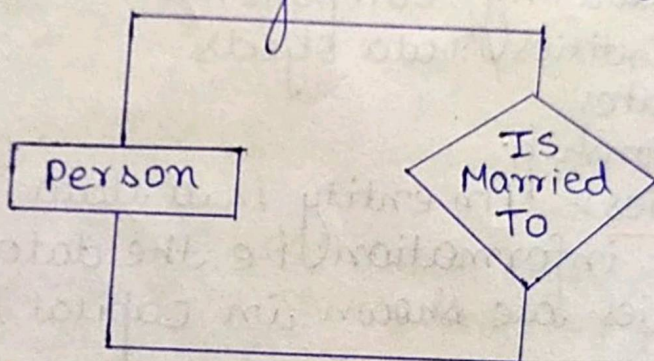 Person
IS
Married
TO